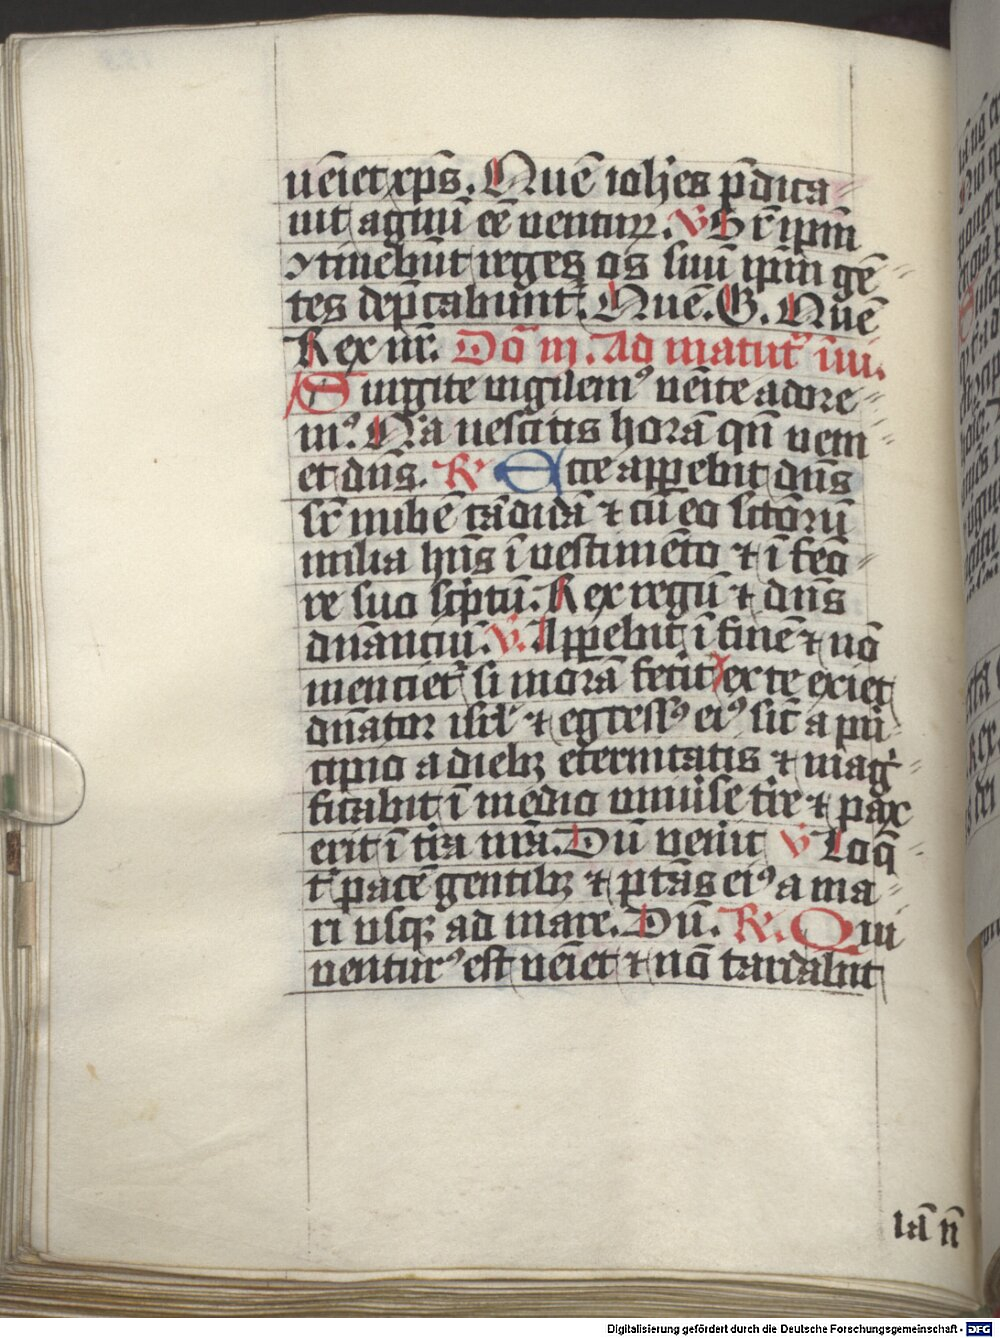 uēiet xp̄s. Quē ioh̄es p̄dica
uit agnū eē uentur͛. V Sr̄ ip̄m
ꝯtinebūt reges os suū ip̄m gē
tes dep̄cabunt᷑. Quē. G. Quē
Rex nr̄. Dō iij. Ad matut᷑ īui.
Surgite uigilemꝰ uēite adore
mꝰ. Q̄a nescitis horā qn̄ ueni
et dn̄s. R Ecce appebit dn̄s
sr̄ nubē cādidā ⁊ cū eo sc̄torū
milia hn̄s ī uestimēto ⁊ ī femo
re suo sc̄ptū. Rex regū ⁊ dn̄s
dn̄anciū. V. Appebit ī finē ⁊ nō
menciet᷑ si morā fecit᷑ ex te exiet
dn̄ator isrl̄ ⁊ egressꝰ eiꝰ sic̄ a pri
cipio a diebꝫ eternitatis ⁊ mag͛
ficabit᷑ ī medio uniuse tr̄e ⁊ pax
erit ī tr̄a nrā. Dū uenit V Loq̄
t᷑ pacē gentibꝫ ⁊ p̄tās eiꝰ a ma
ri usqꝫ ad mare. Dū. R. Qui
uenturꝰ est ueīet ⁊ nō tardabit
iā n̄
Digitalisierung gefördert durch die Deutsche Forschungsgemeinschaft - DFG